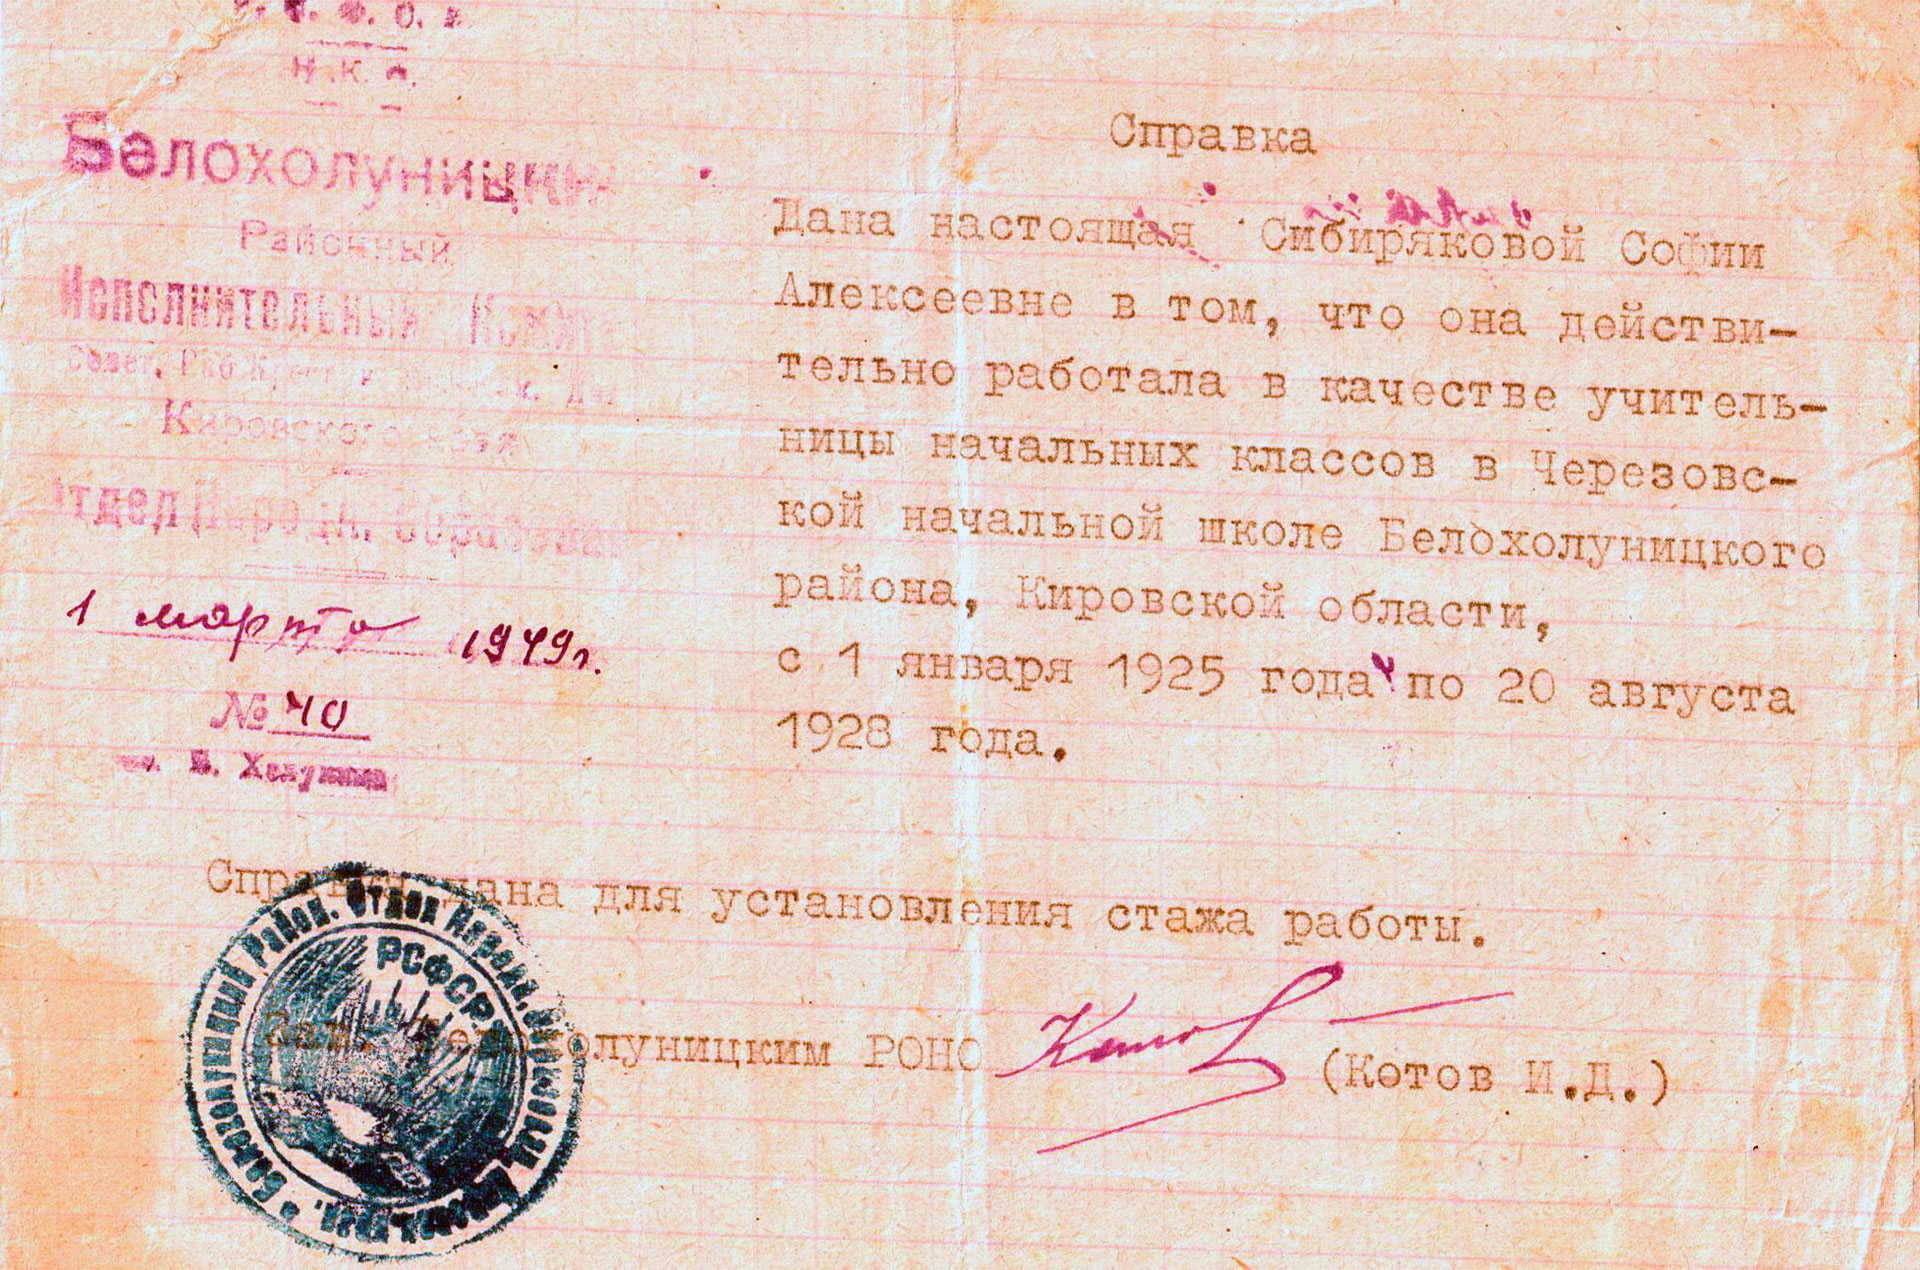 Н.К.П.
Белохолуницкий
Районный
Исполнительный Комитет
Кировского края
Отдел Народн. образован
1 марта 1949г.
№ 40
Б. Холуница
Справка
Дана настоящая Сибиряковой Софии
Алексеевне в том, что она действи-
тельно работала в качестве учитель-
ницы начальных классов в Черезовс-
кой начальной школе Белохолуницкого
района, Кировской области,
с 1 января 1925 года по 20 августа
1928 года.
Справка дана для установления стажа работы.
Зав. Белохолуницким РОНО Котов (Котов И.Д.)
РСФСР
Белохолуницкий Район. Отдел Народн.